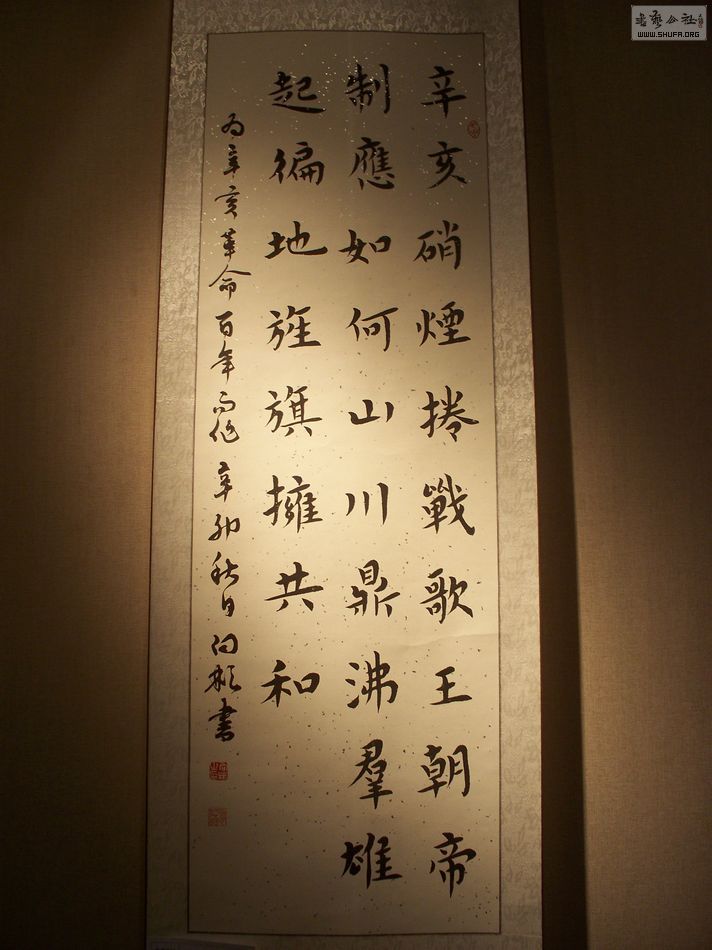 辛亥硝煙捲戰歌王朝帝
制應如何山川鼎沸羣雄
起徧地旌旗擁共和
為辛亥革命百年而作 辛卯秋日 書
書藝公社
WWW.SHUFA.ORG